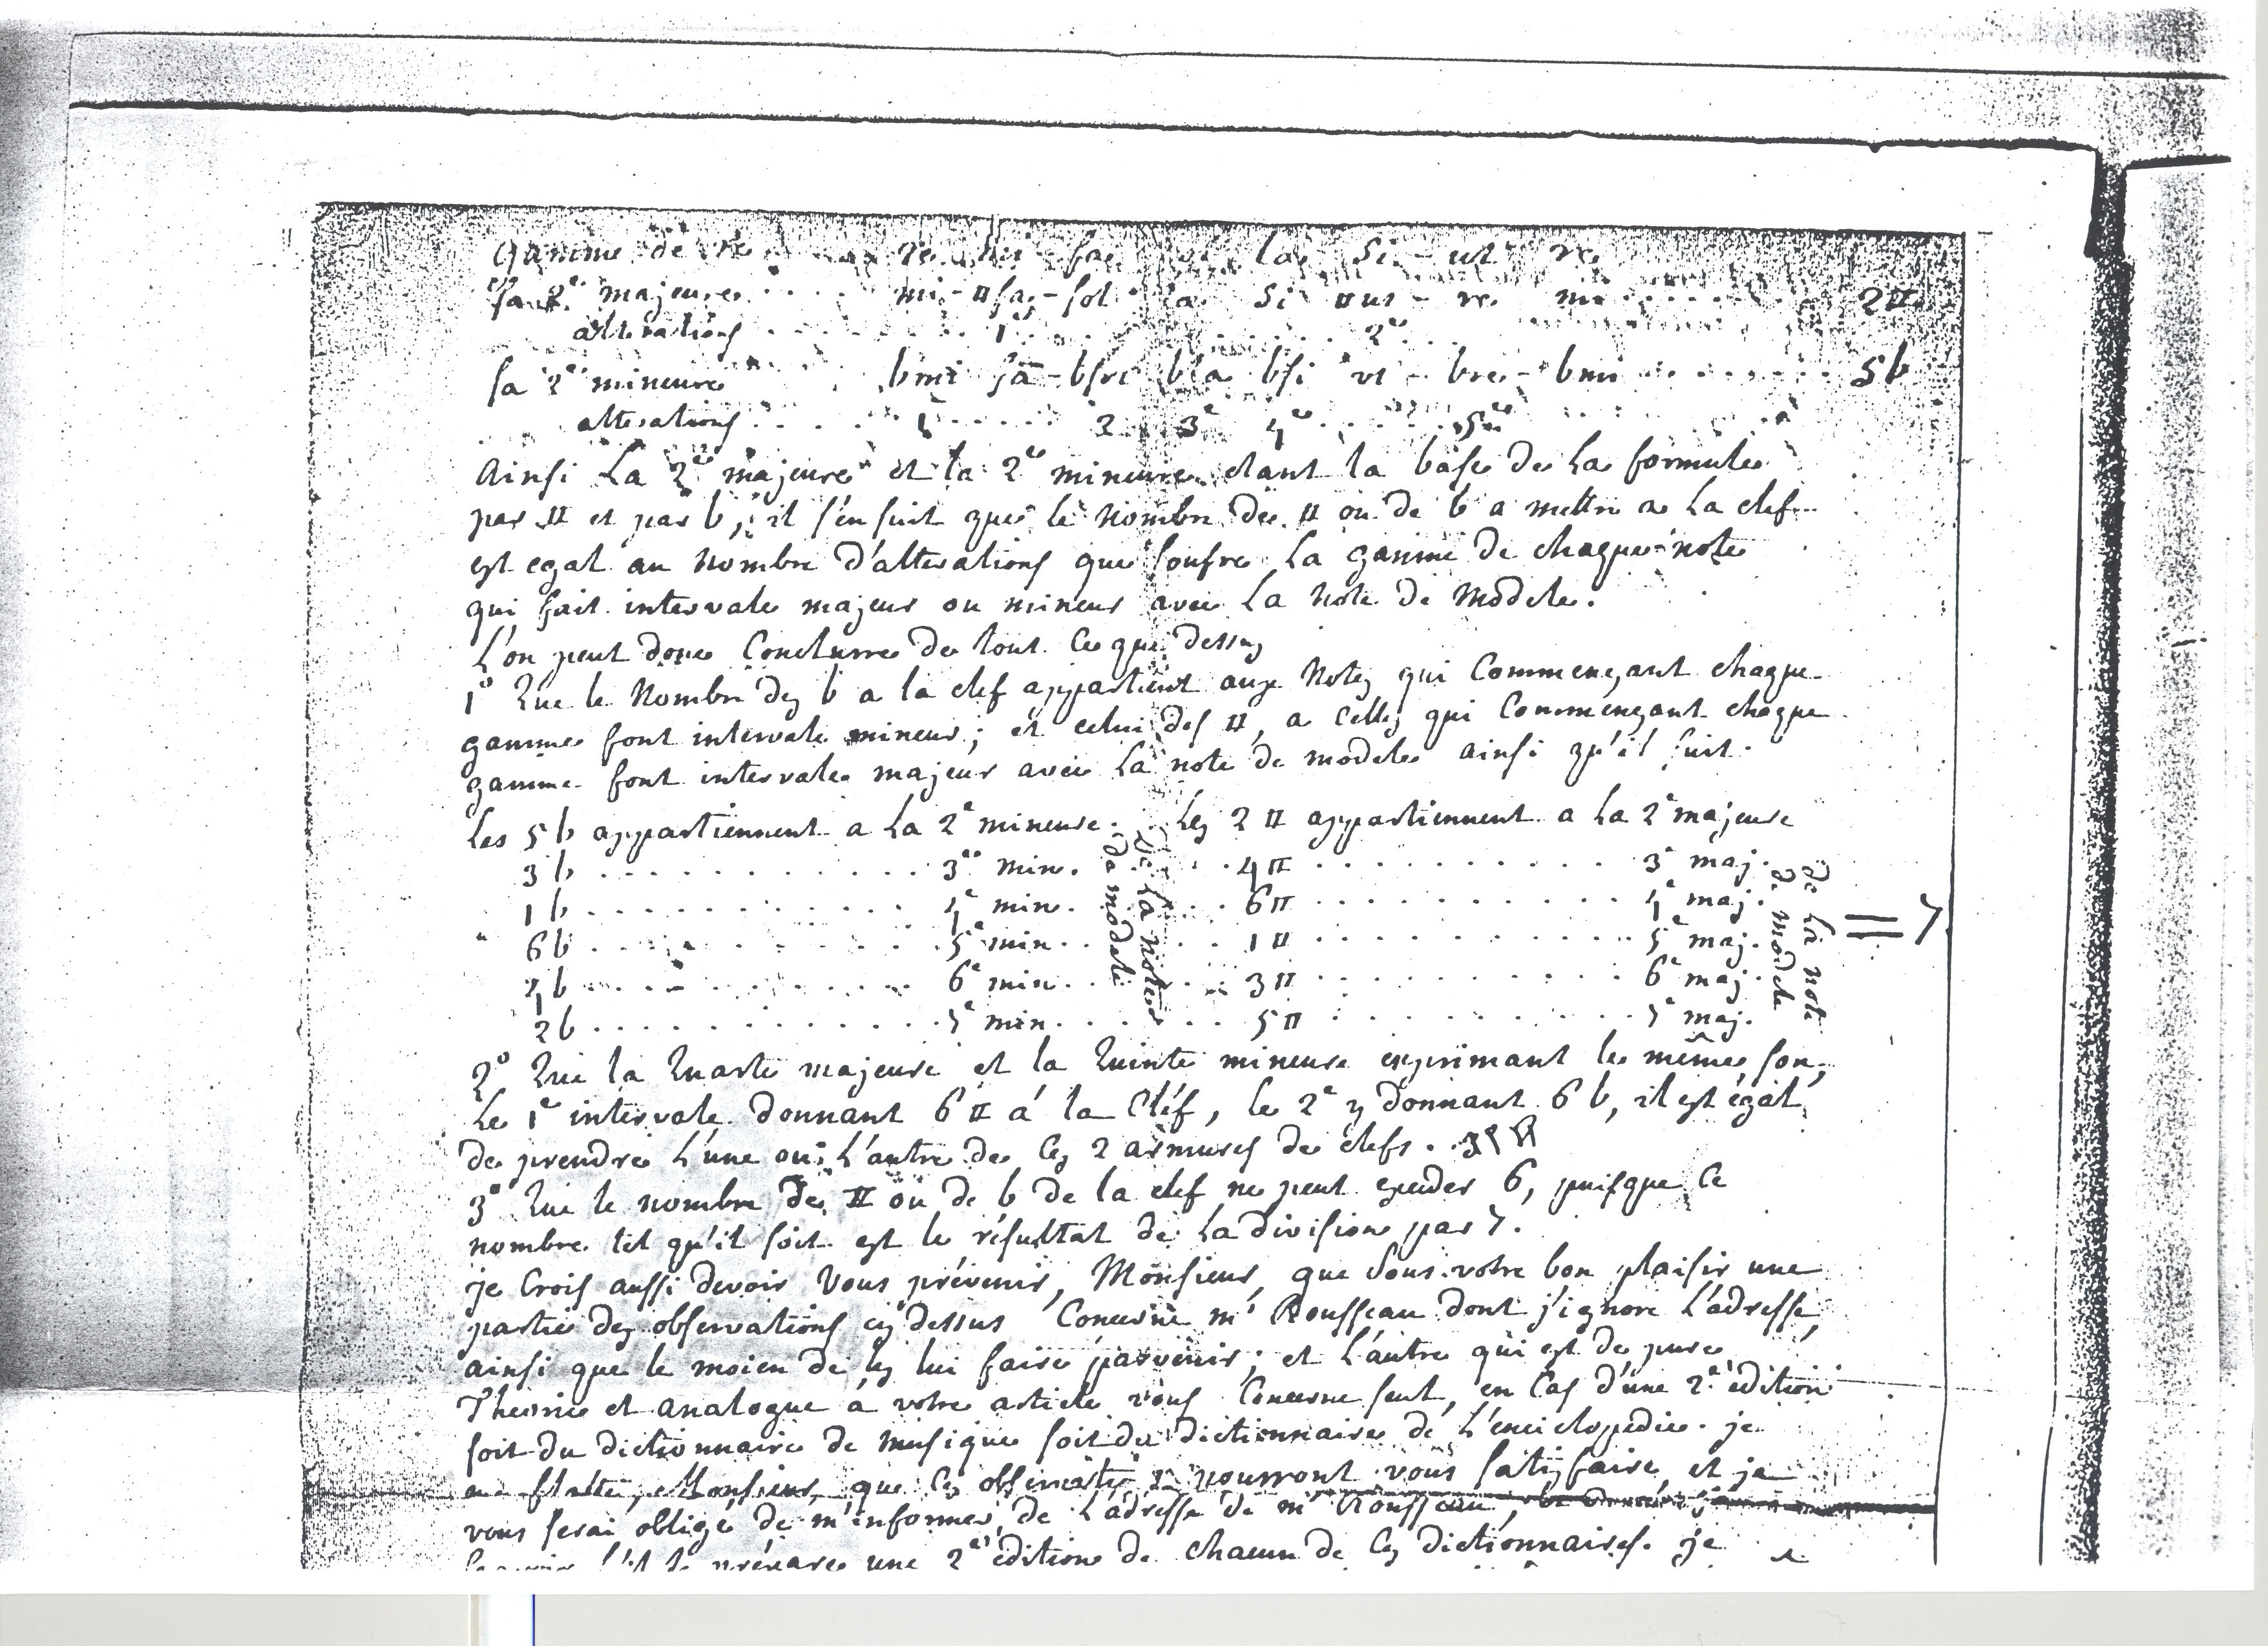 Gamme de re . . . . . re mi - fa sol la si - ut re
sa 2.e majeure . . . . mi - #fa - sol la si #ut - re mi . . . . . . 2#
alterations . . . . . . . . 1e . . . . . . . 2e . . .
sa 2e mineure . bmi fa - bsol bla bsi ut - bre - bmi . . . . . . . 5b
alterations . . . . . 1e . . . . . 2 3e 4e . . . . . 5e
Ainsi la 2e majeure et la 2e mineure etant la base de la formule
par # et par b, il s'en suit que le nombre de # ou de b a mettre a la clef
est egal au nombre d'alterations que soufre la gamme de chaque note
qui fait intervale majeur ou mineur avec la note de modele.
L'on peut donc conclurre de tout ce que dessus
1o Que le nombre des b a la clef appartient aux notes qui commençant chaque
gamme font intervale mineur; et celui des #, a celles qui commençant chaque
gamme font intervale majeur avec la note de modele ainsi qu'il suit.
Les 5b appartiennent a la 2e mineure. Les 2# appartiennent a la 2e majeure
3b . . . . . . . . . . . . 3e min. . . 4# . . . . . . . . . . . 3e maj.
1b . . . . . . . . . . . . 4e min. . . . 6# . . . . . . . . . . . 4e maj.
6b . . . . . . . . . . . . 5e min. . . . 1# . . . . . . . . . . . 5e maj.
4b . . . . . . . . . . . . 6e min. . . . 3# . . . . . . . . . . . 6e maj.
2b . . . . . . . . . . . . 7e min. . . . 5# . . . . . . . . . . . 7e maj.
de la note
de modele
de la note
de modele
= 7
2o Que la Quarte majeure et la Quinte mineure exprimant le même son,
Le 1e intervale donnant 6# á la Cléf, le 2e y donnant 6b, il est égal
de prendre l'une ou l'autre de ces 2 armures de clefs.
3o Que le nombre de # ou de b de la clef ne peut exceder 6, puisque ce
nombre tel qu'il soit est le résultat de la division par 7.
je crois aussi devoir vous prévenir, Monsieur, que sous votre bon plaisir une
partie des observations cy dessus concerne mr Rousseau dont j'ignore l'adresse,
ainsi que le moien de les lui faire parvenir; et l'autre qui est de pure
Theorie et analogue á votre article vous concerne seul, en cas d'une 2e édition
soit du dictionnaire de musique soit du dictionnaire de l'enciclopedie. je
me flatte, Monsieur, que ces observations pourront vous satisfaire, et je
vous serai obligé de m'informer de l'adresse de mr Rousseau,
s'il se prépare une 2e édition de chacun de ces dictionnaires. je